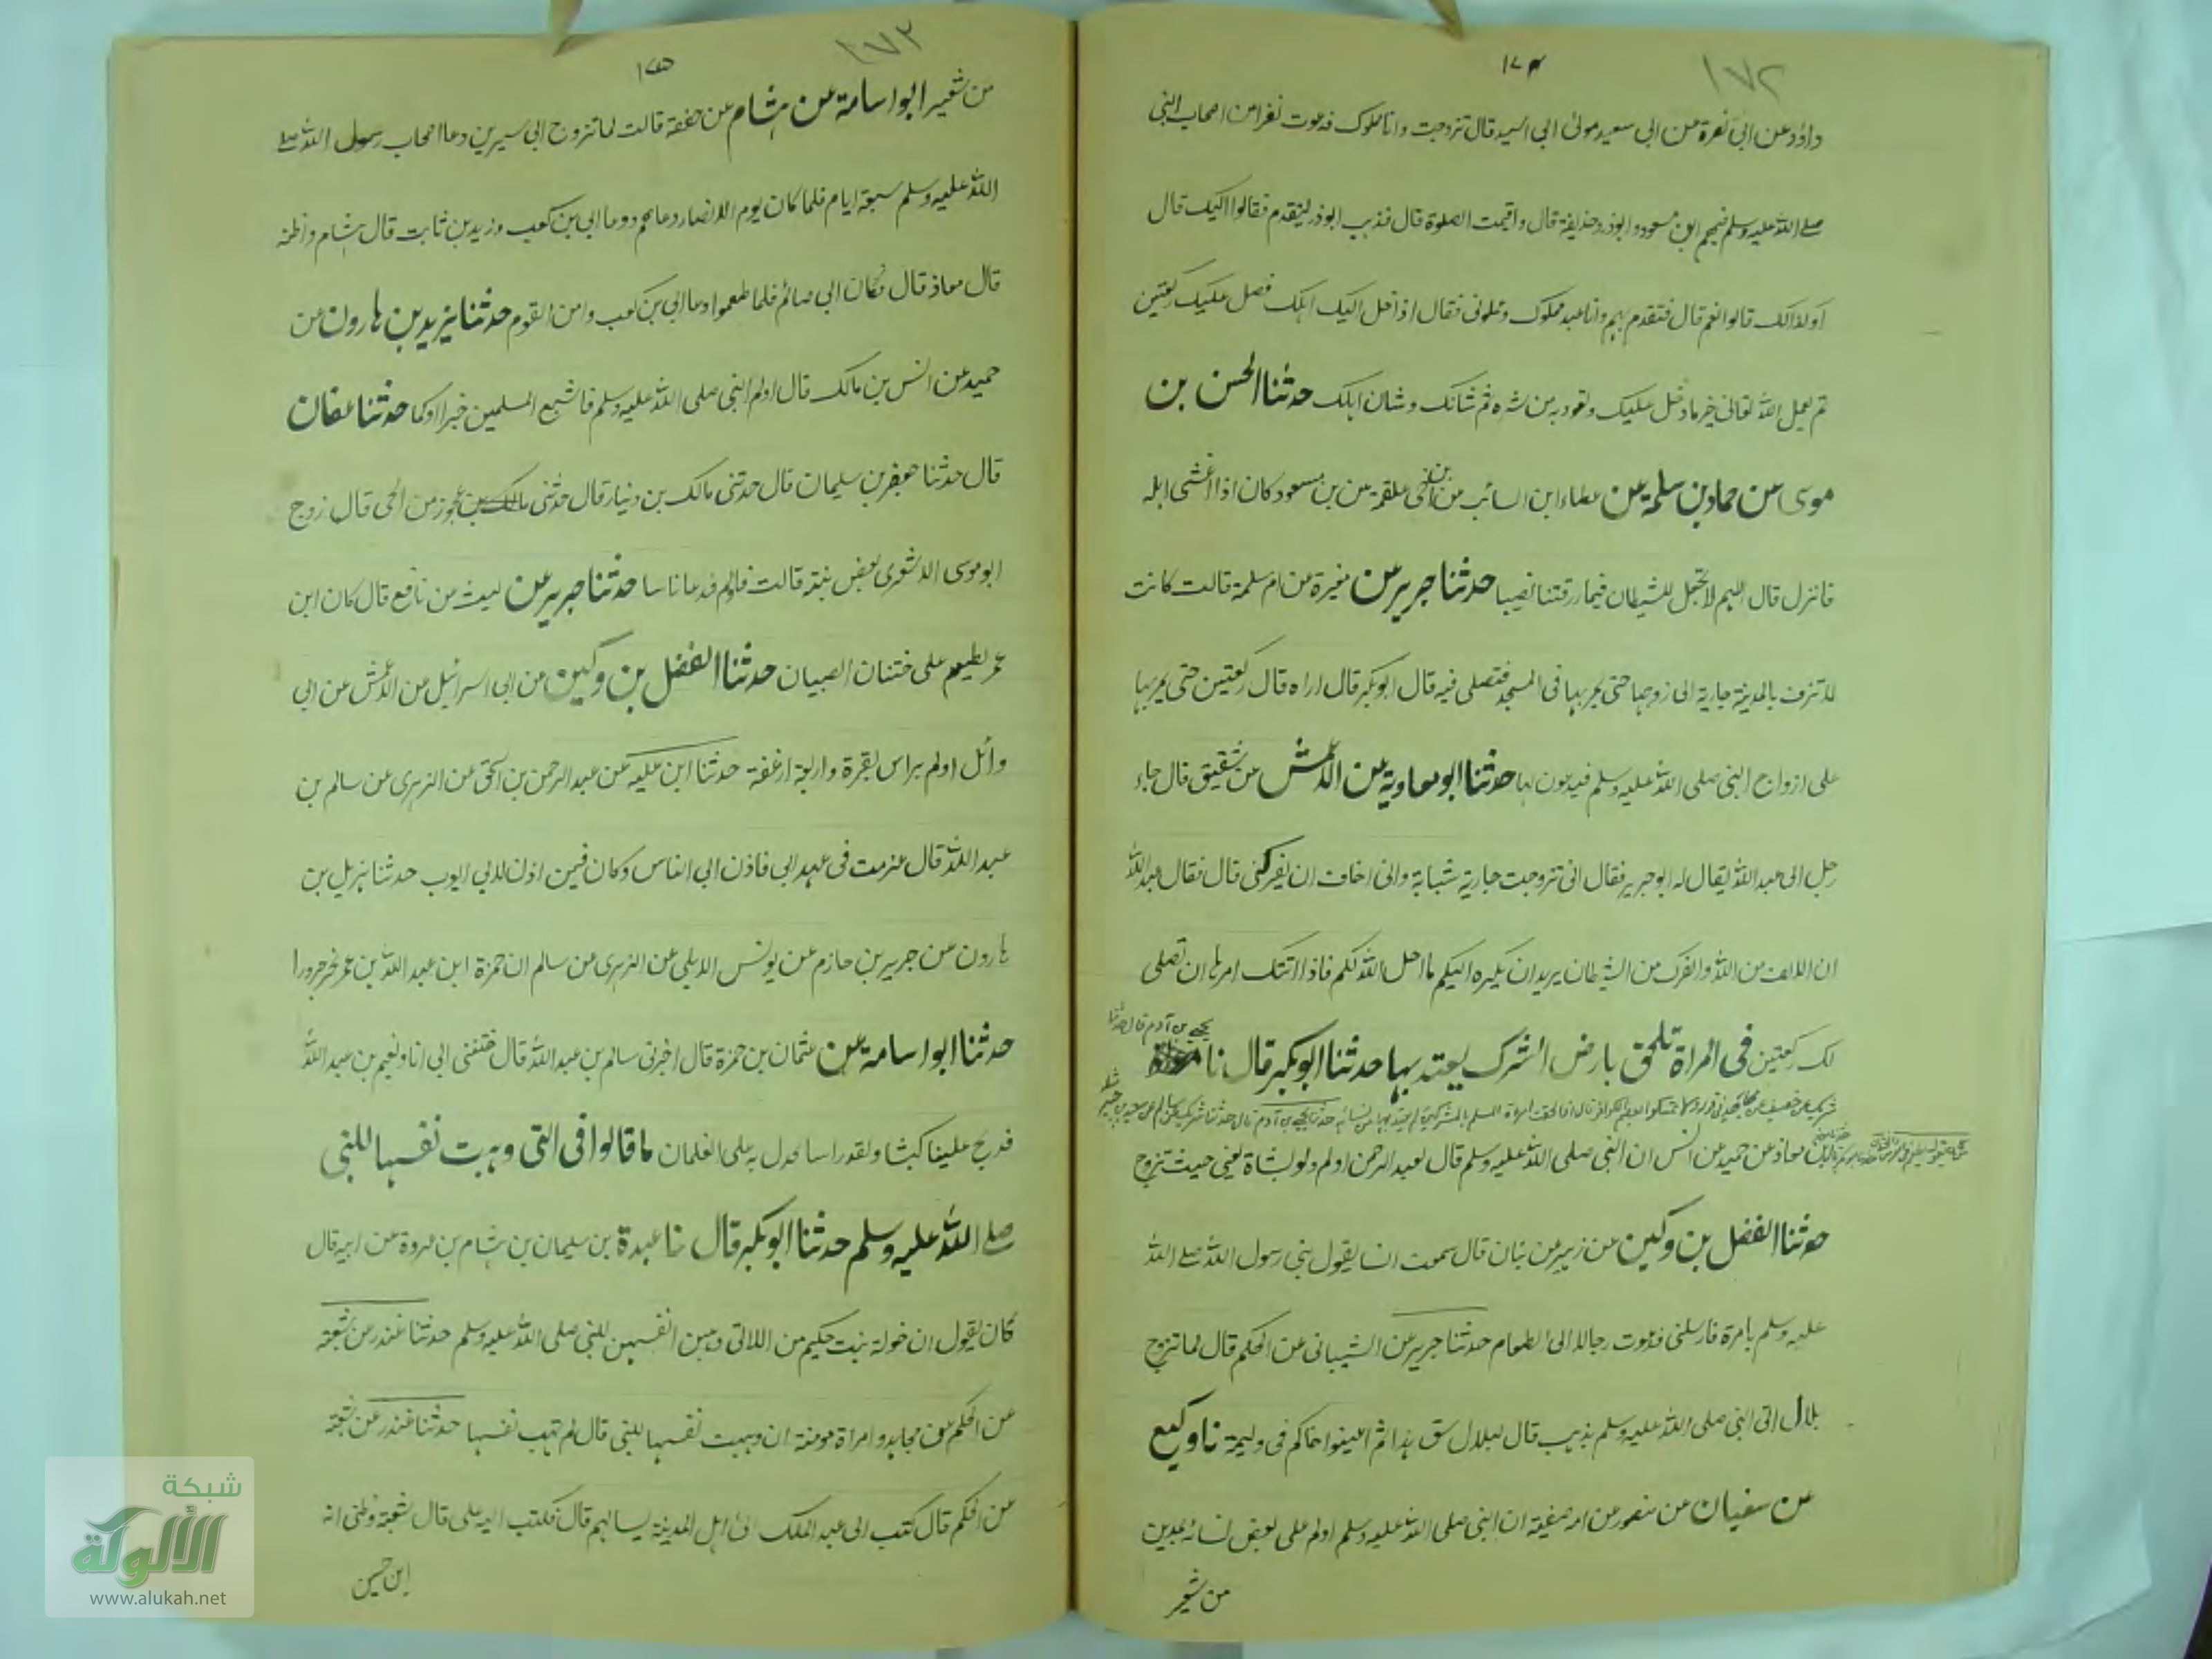 ١٧٢
١٧۴
داؤد عن ابى نضرة عن ابى سعيد مولى ابى اسيد قال تزوجت وانا مملوك فدعوت نفرا من اصحاب النبى
صلے الله عليه وسلم فيهم ابن مسعود وابوذر وحذيفة قال واقيمت الصلوة قال فذهب ابوذر ليتقدم فقالوا اليك قال
او كذالك قالوا نعم قال فتقدم بهم وانا عبد مملوك وعلمونى فقال اذا دخل اليك اهلك فصل عليك ركعتين
ثم سل الله تعالى خير ما دخل عليك وتعوذ به من شره ثم شانك وشان اهلك حدثنا الحسن بن
موسى عن حماد بن سلمة عن عطاء ابن السائب عن ابن اخى علقمة عن بن مسعود كان اذا غشى اهله
فانزل قال اللهم لا تجعل للشيطان فيما رزقتنا نصيبا حدثنا جرير عن مغيرة عن ام سلمة قالت كانت
لا تزف بالمدينة جارية الى زوجها حتى يمر بها فى المسجد فتصلى فيه قال ابوبكر قال اراه قال ركعتين حتى يمر بها
على ازواج النبى صلى الله عليه وسلم فيدعون لها حدثنا ابو معاوية عن الاعمش عن شقيق قال جاء
رجل الى عبد الله يقال له ابو جرير فقال انى تزوجت جارية شبابة وانى اخاف ان يفركنى قال فقال عبد الله
ان الالف من الله والفرك من الشيطان يريد ان يكره اليكم ما احل الله لكم فاذا اتتك امرها ان تصلى
لك ركعتين فى المراة تلحق بارض الشرك يعتد بها حدثنا ابوبكر قال نا
يحيى بن آدم قال حدثنا
معاذ عن حميد عن انس ان النبى صلى الله عليه وسلم قال لعبد الرحمن اولم ولو بشاة يعنى حيث تزوج
حدثنا الفضل بن وكين عن زهير عن بيان قال سمعت انسا يقول بنى رسول الله صلے الله
عليه وسلم بامرة فارسلنى فدعوت رجالا الى الطعام حدثنا جرير عن الشيبانى عن الحكم قال لما تزوج
بلال اتى النبى صلى الله عليه وسلم بذهب قال لبلال سق هذا ثم اعينوا اخاكم فى وليمة نا وكيع
عن سفيان عن منصور عن امه صفية ان النبى صلى الله عليه وسلم اولم على بعض نسائه بمدين
من شعير
١٧٣
١٧۵
من شعير ابو اسامة عن هشام عن حفصة قالت لما تزوج ابى سيرين دعا اصحاب رسول الله صلے
الله عليه وسلم سبعة ايام فلما كان يوم الانصار دعاهم ودعا ابى بن كعب وزيد بن ثابت قال هشام واظنه
قال معاذ قال فكان ابى صائم فلما طعموا دعا ابى بن كعب وامن القوم حدثنا يزيد بن هارون عن
حميد عن انس بن مالك قال اولم النبى صلى الله عليه وسلم فاشبع المسلمين خبزا ولحما حدثنا عفان
قال حدثنا جعفر بن سليمان قال حدثنى مالك بن دينار قال حدثنى عجوز من الحى قال زوج
ابو موسى الاشعرى بعض بنيه قالت فاولم فدعا ناسا حدثنا جرير عن ليث عن نافع قال كان ابن
عمر يطعم على ختنان الصبيان حدثنا الفضل بن وكين عن ابى اسرائيل عن الاعمش عن ابى
وائل اولم براس بقرة واربعة ارغفة حدثنا ابن علية عن عبد الرحمن بن اسحق عن الزهرى عن سالم بن
عبد الله قال عزمت فى عهد ابى فاذن ابى الناس وكان فيمن اذن لابى ايوب حدثنا يزيد بن
هارون عن جرير بن حازم عن يونس الايلى عن الزهرى عن سالم ان حمزة ابن عبد الله بن عمر نحر جزورا
حدثنا ابو اسامة عن عثمان بن حمزة قال اخبرنى سالم بن عبد الله قال ختننى ابى انا ونعيم بن عبد الله
فذبح علينا كبشا ولقد راينا نجدل به على الغلمان ما قالوا فى التى وهبت نفسها للنبى
صلے الله عليه وسلم حدثنا ابوبكر قال نا عبدة بن سليمان بن هشام بن عروة عن ابيه قال
كان يقول ان خولة بنت حكيم من اللاتى وهبن انفسهن للنبى صلى الله عليه وسلم حدثنا غندر عن شعبة
عن الحكم عن مجاهد وامراة مومنة ان وهبت نفسها للنبى قال لم تهب نفسها حدثنا غندر عن شعبة
عن الحكم قال كتب الى عبد الملك الى اهل المدينة يسالهم قال فكتب اليه على قال شعبة وظنى انه
ابن حسين
شبكة
الألوكة
www.alukah.net